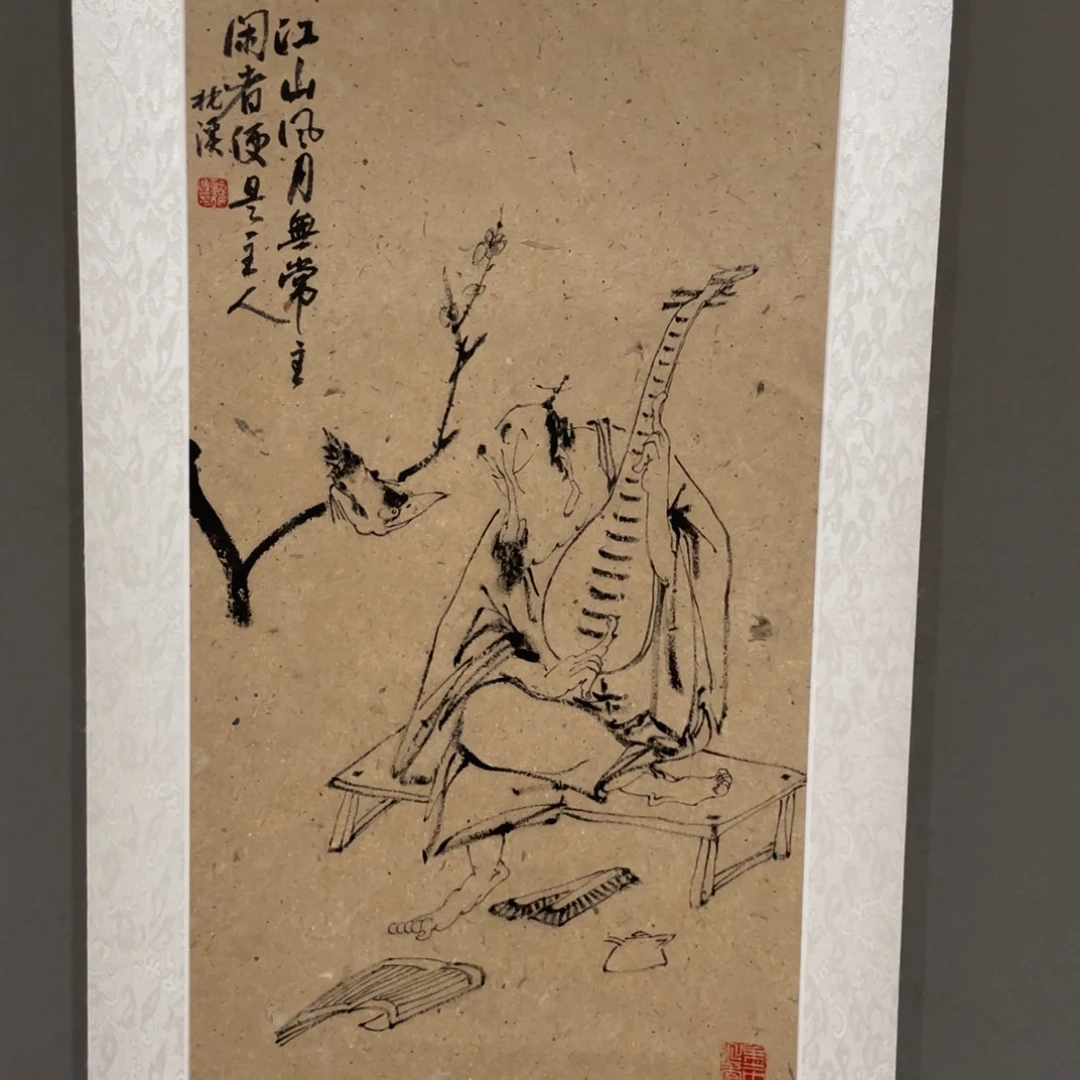 江山风月無常主
闲者便是主人
枕溪